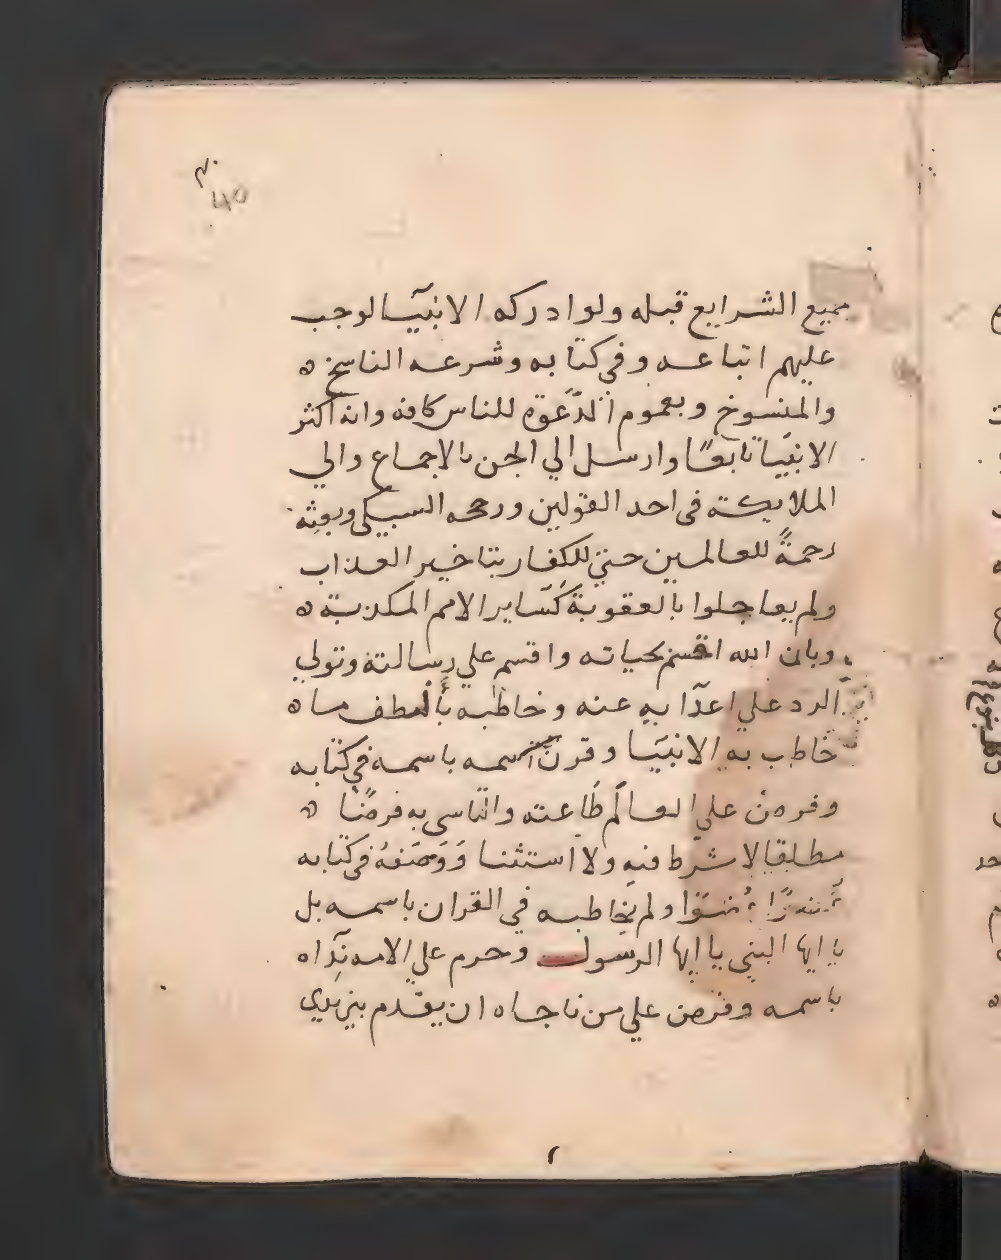 جميع الشرايع قبله ولو ادركه الانبيآ لوجب
عليهم اتباعه وفي كتابه وشرعه الناسخ ه
والمنسوخ وبعموم الدَّعوة للناس كافه وانه اكثر
الانبيّا تابعًا وارسل الي الجن بالاجماع والي
الملايكة في احد القولين ورجحه السبكي وبعثه
رحمةً للعالمين حتي للكفار بتاخير العذاب
ولم يعاجلوا بالعقوبة كسَاير الامم المكذبة ه
وبان الله اقسم بحياته واقسم علي رسالته وتولي
الرد علي اعدآ به عنه وخاطبه بألطف ما ه
خاطب به الانبيَا وقرن اسمه باسمه في كتابه
وفرض علي العالم طَاعته والتاسي به فرضًا ه
مطلقا لا شرط فيه ولا استثنا وَوَصَفهُ في كتابه
عُضوًا عُضوًا ولم يخاطبه في القران باسمه بل
يا ايها النبي يا ايها الرسول وحرم علي الامه نِدآه
باسمه وفرض علي من ناجاه ان يقدم بين يدي